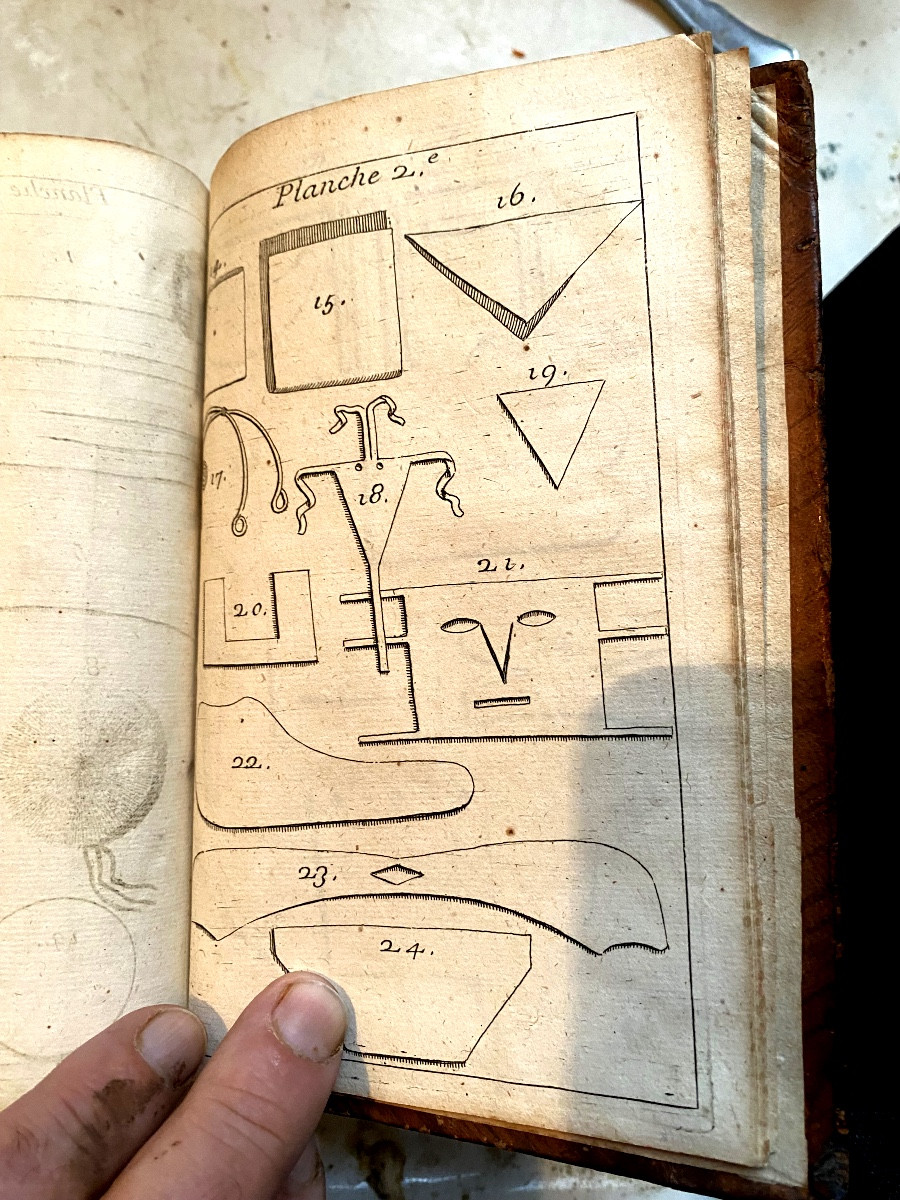 Planche 2.e
16.
15.
19.
17.
18.
21.
20.
22.
23.
24.
Planche